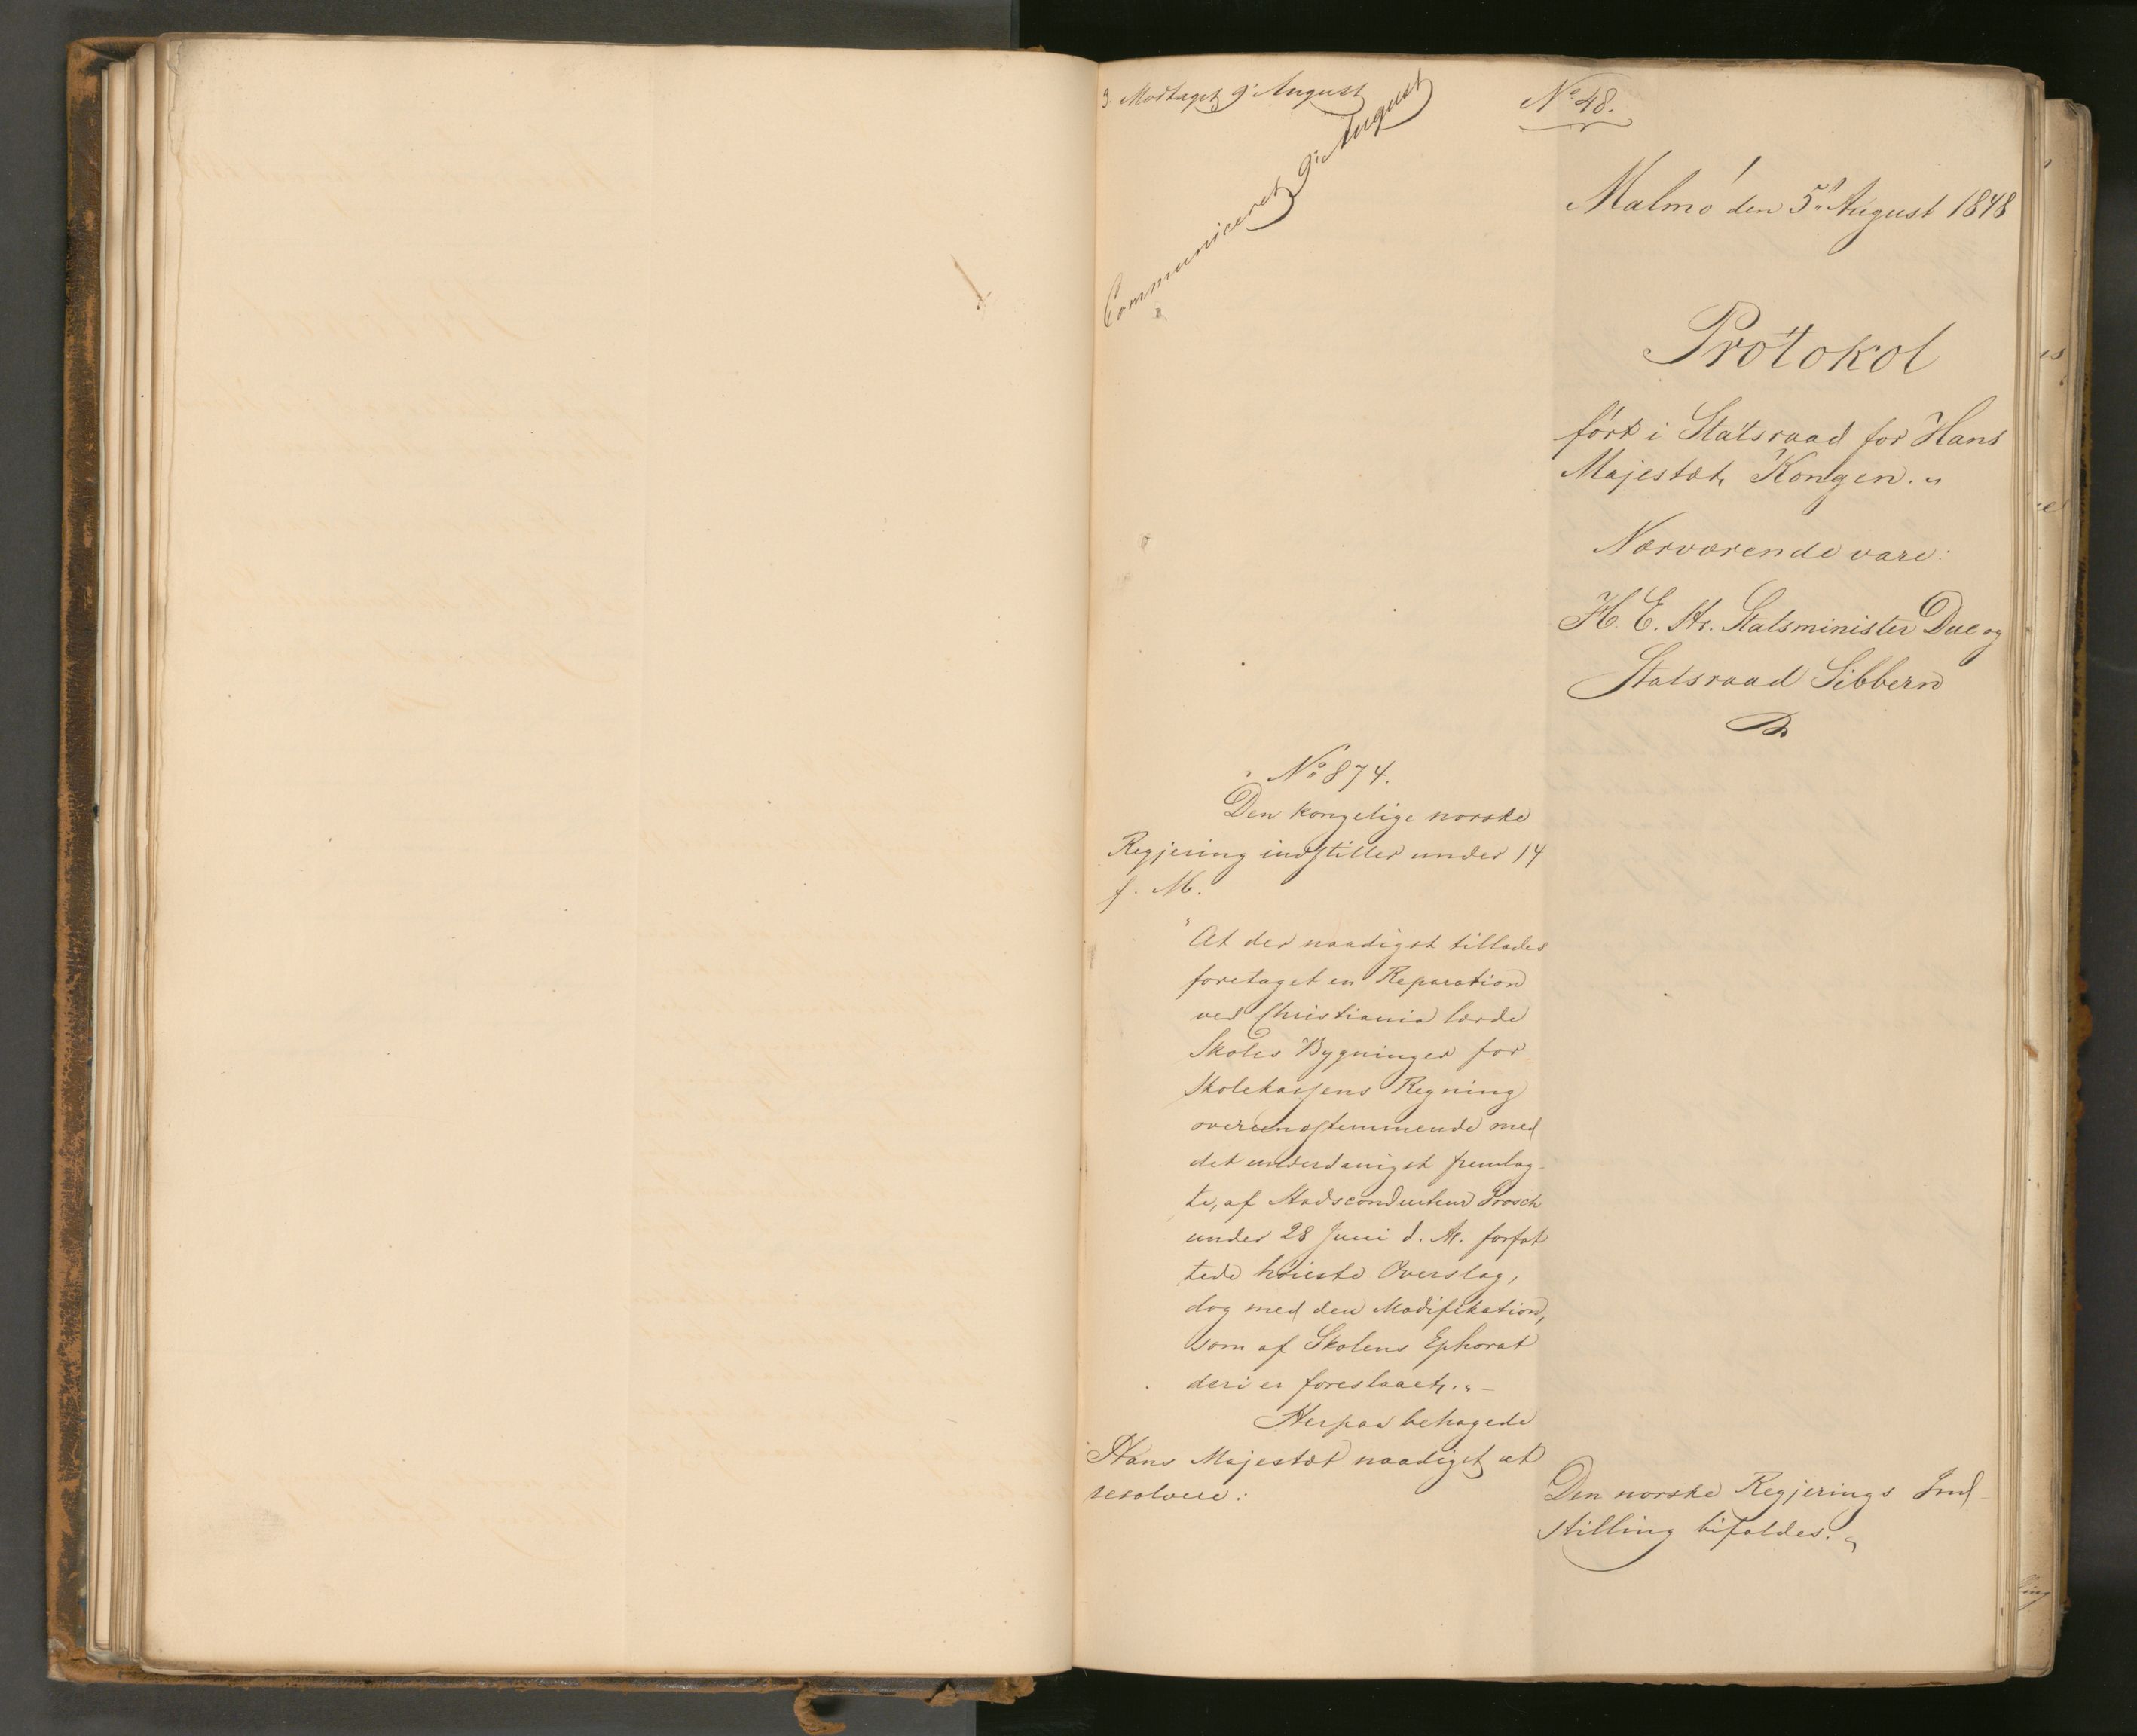 3. Modtaget 9' August
Communiceret 9' August
No 48.
Malmö den 5' August 1848
Protokol
ført i Statsraad for Hans
Majestæt Kongen. "
Nærværende vare:
H. E. Hr. Statsminister Due og
Statsraad Sibbern
No 874.
Den kongelige norske
Regjering indstiller under 14
f. M.
"At der naadigst tillades
foretaget en Reparation
ved Christiania lærde
Skoles Bygninger for
Skolekassens Regning
overeensstemmende med
det underdanigst fremlag-
te, af Stadsconducteur Grosch
under 28 Juni d. A. forfat
tede høieste Overslag,
dog med den Modifikation,
som af Skolens Ephorat
deri er foreslaaet." -
Herpaa behagede
Hans Majestæt naadigst at
resolvere:
Den norske Regjerings Ind-
stilling bifaldes. "